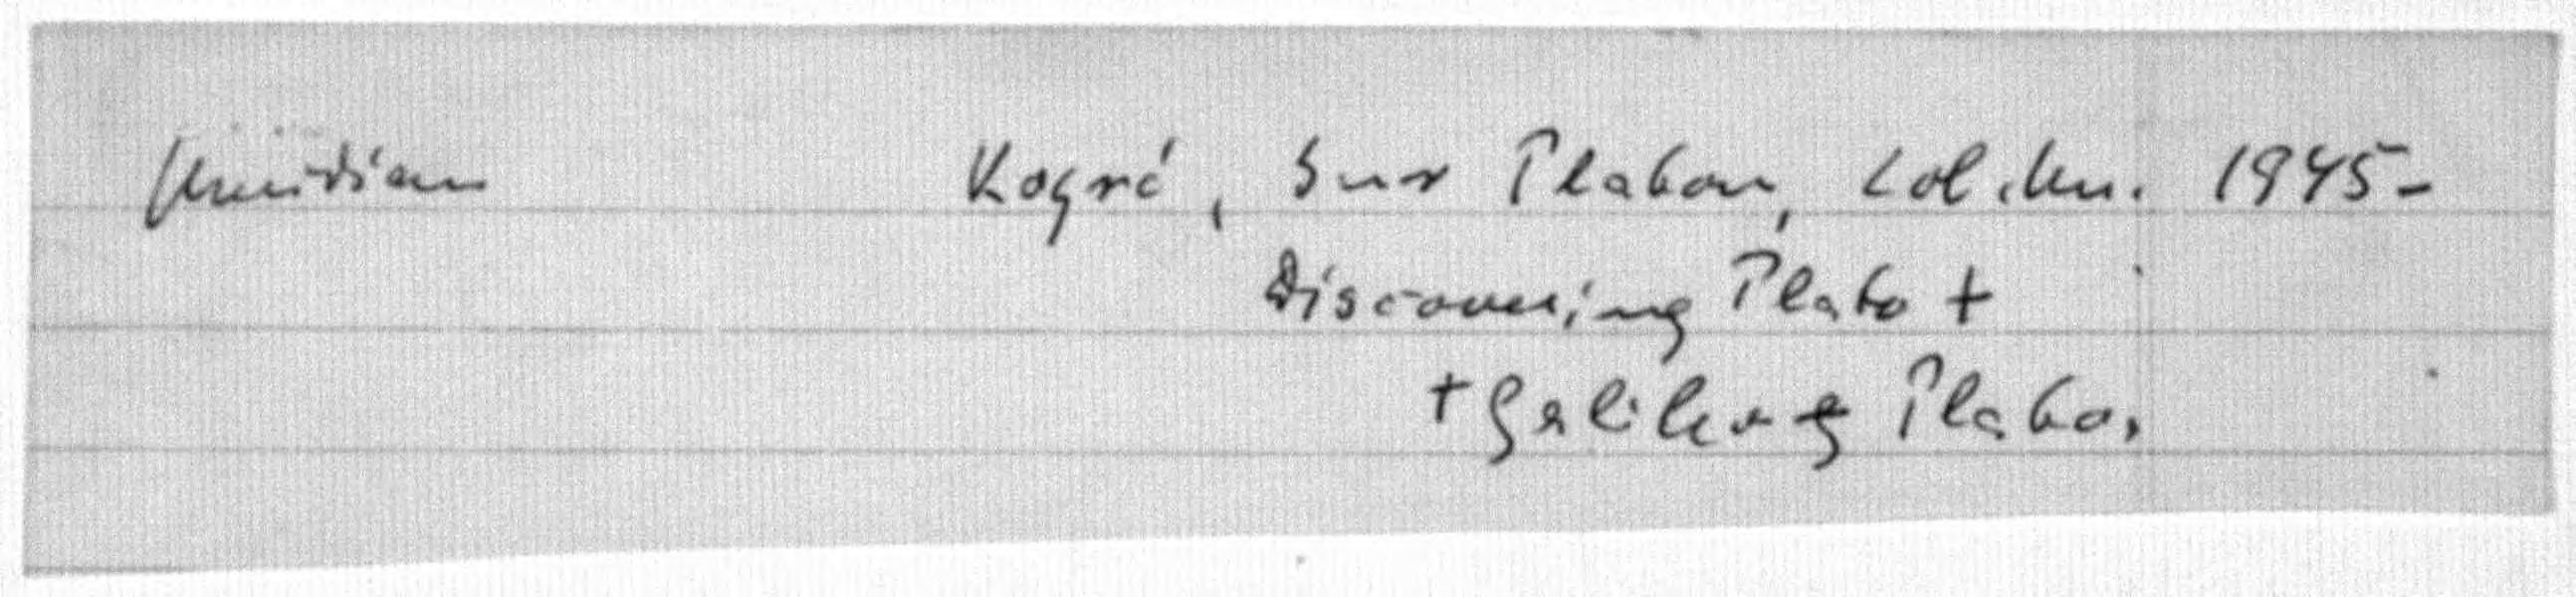 Meridian Koyré, Sur Platon, Col. Un. 1945-
Discovering Plato +
+ Galileo & Plato.